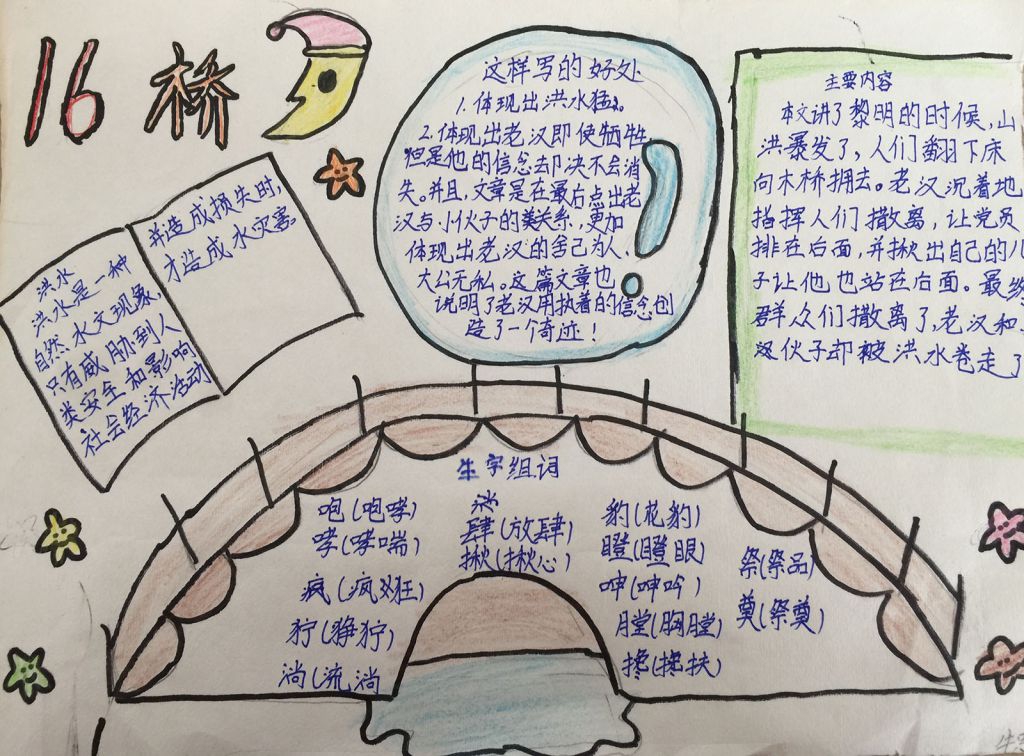 16 桥
这样写的好处
1.体现出洪水猛。
2.体现出老汉即使牺牲
但是他的信念却决不会消
失。并且,文章是在最后点出老
汉与小伙子的关系,更加
体现出老汉的舍己为人、
大公无私。这篇文章也
说明了老汉用执着的信念创
造了一个奇迹!
主要内容
本文讲了黎明的时候,山
洪暴发了,人们翻下床
向木桥拥去。老汉沉着地
指挥人们撤离,让党员
排在后面,并揪出自己的儿
子让他也站在后面。最终
群众们撤离了,老汉和
伙子却被洪水卷走了
洪水
洪水是一种
自然水文现象,
只有威胁到人
类安全和影响
社会经济活动
并造成损失时,
才造成水灾害
生字组词
咆(咆哮)
哮(哮喘)
疯(疯狂)
狞(狰狞)
淌(流淌)
肆(放肆)
揪(揪心)
豹(花豹)
瞪(瞪眼)
呻(呻吟)
膛(胸膛)
搀(搀扶)
祭(祭品)
奠(祭奠)